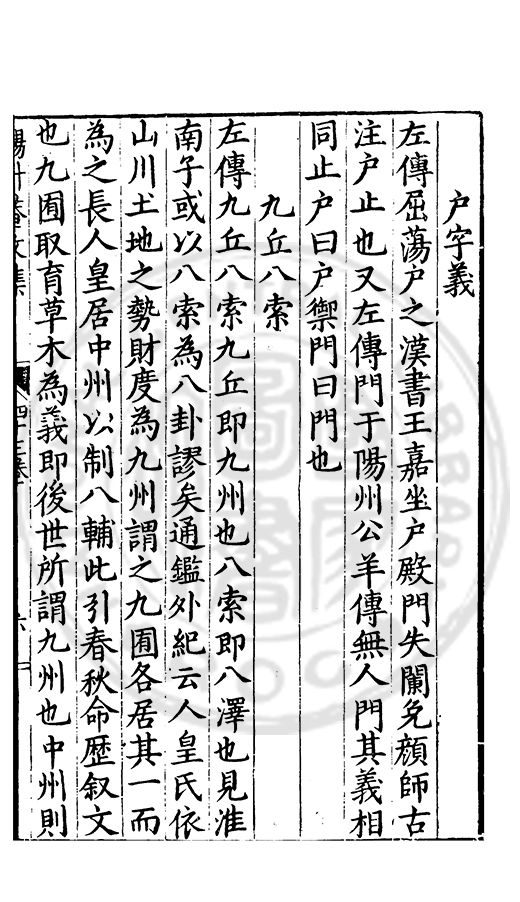 户字義
左傳屈蕩户之漢書王嘉坐户殿門失闌免顔師古
注户止也又左傳門于陽州公羊傳無人門其義相
同止户曰户禦門曰門也
九丘八索
左傳九丘八索九丘即九州也八索即八澤也見淮
南子或以八索為八卦謬矣通鑑外紀云人皇氏依
山川土地之勢財度為九州謂之九囿各居其一而
為之長人皇居中州以制八輔此引春秋命歴叙文
也九囿取育草木為義即後世所謂九州也中州則
四十三卷
六